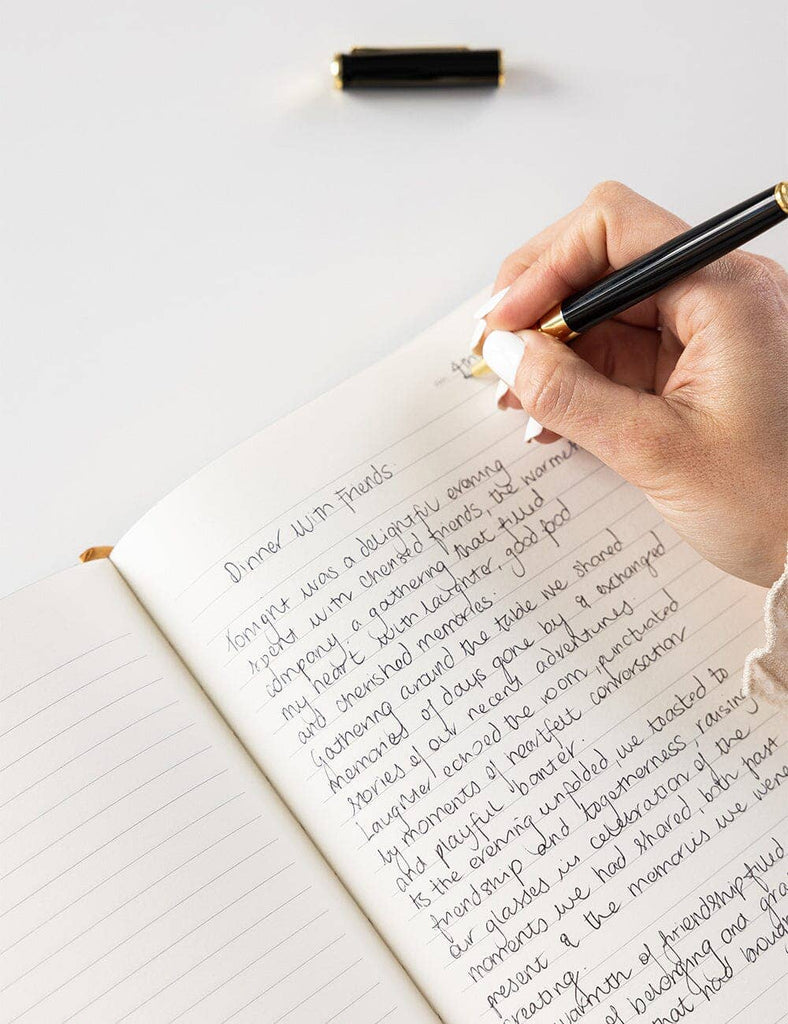 Dinner with friends.
Tonight was a delightful evening
spent with cherised friends, the warmth
company. a gathering that filled
my heart with laughter, good food
and cherished memories.
Gathering around the table we shared
memories of days gone by & exchanged
stories of our recent adventures.
Laughter echoed the room, punctuated
by moments of heartfelt conversation
and playful banter.
As the evening unfolded, we toasted to
friendship and togetherness, raising
our glasses in celebration of the
moments we had shared, both past
present & the memories we were
creating.
warmth of friendship filled
of belonging and
that had